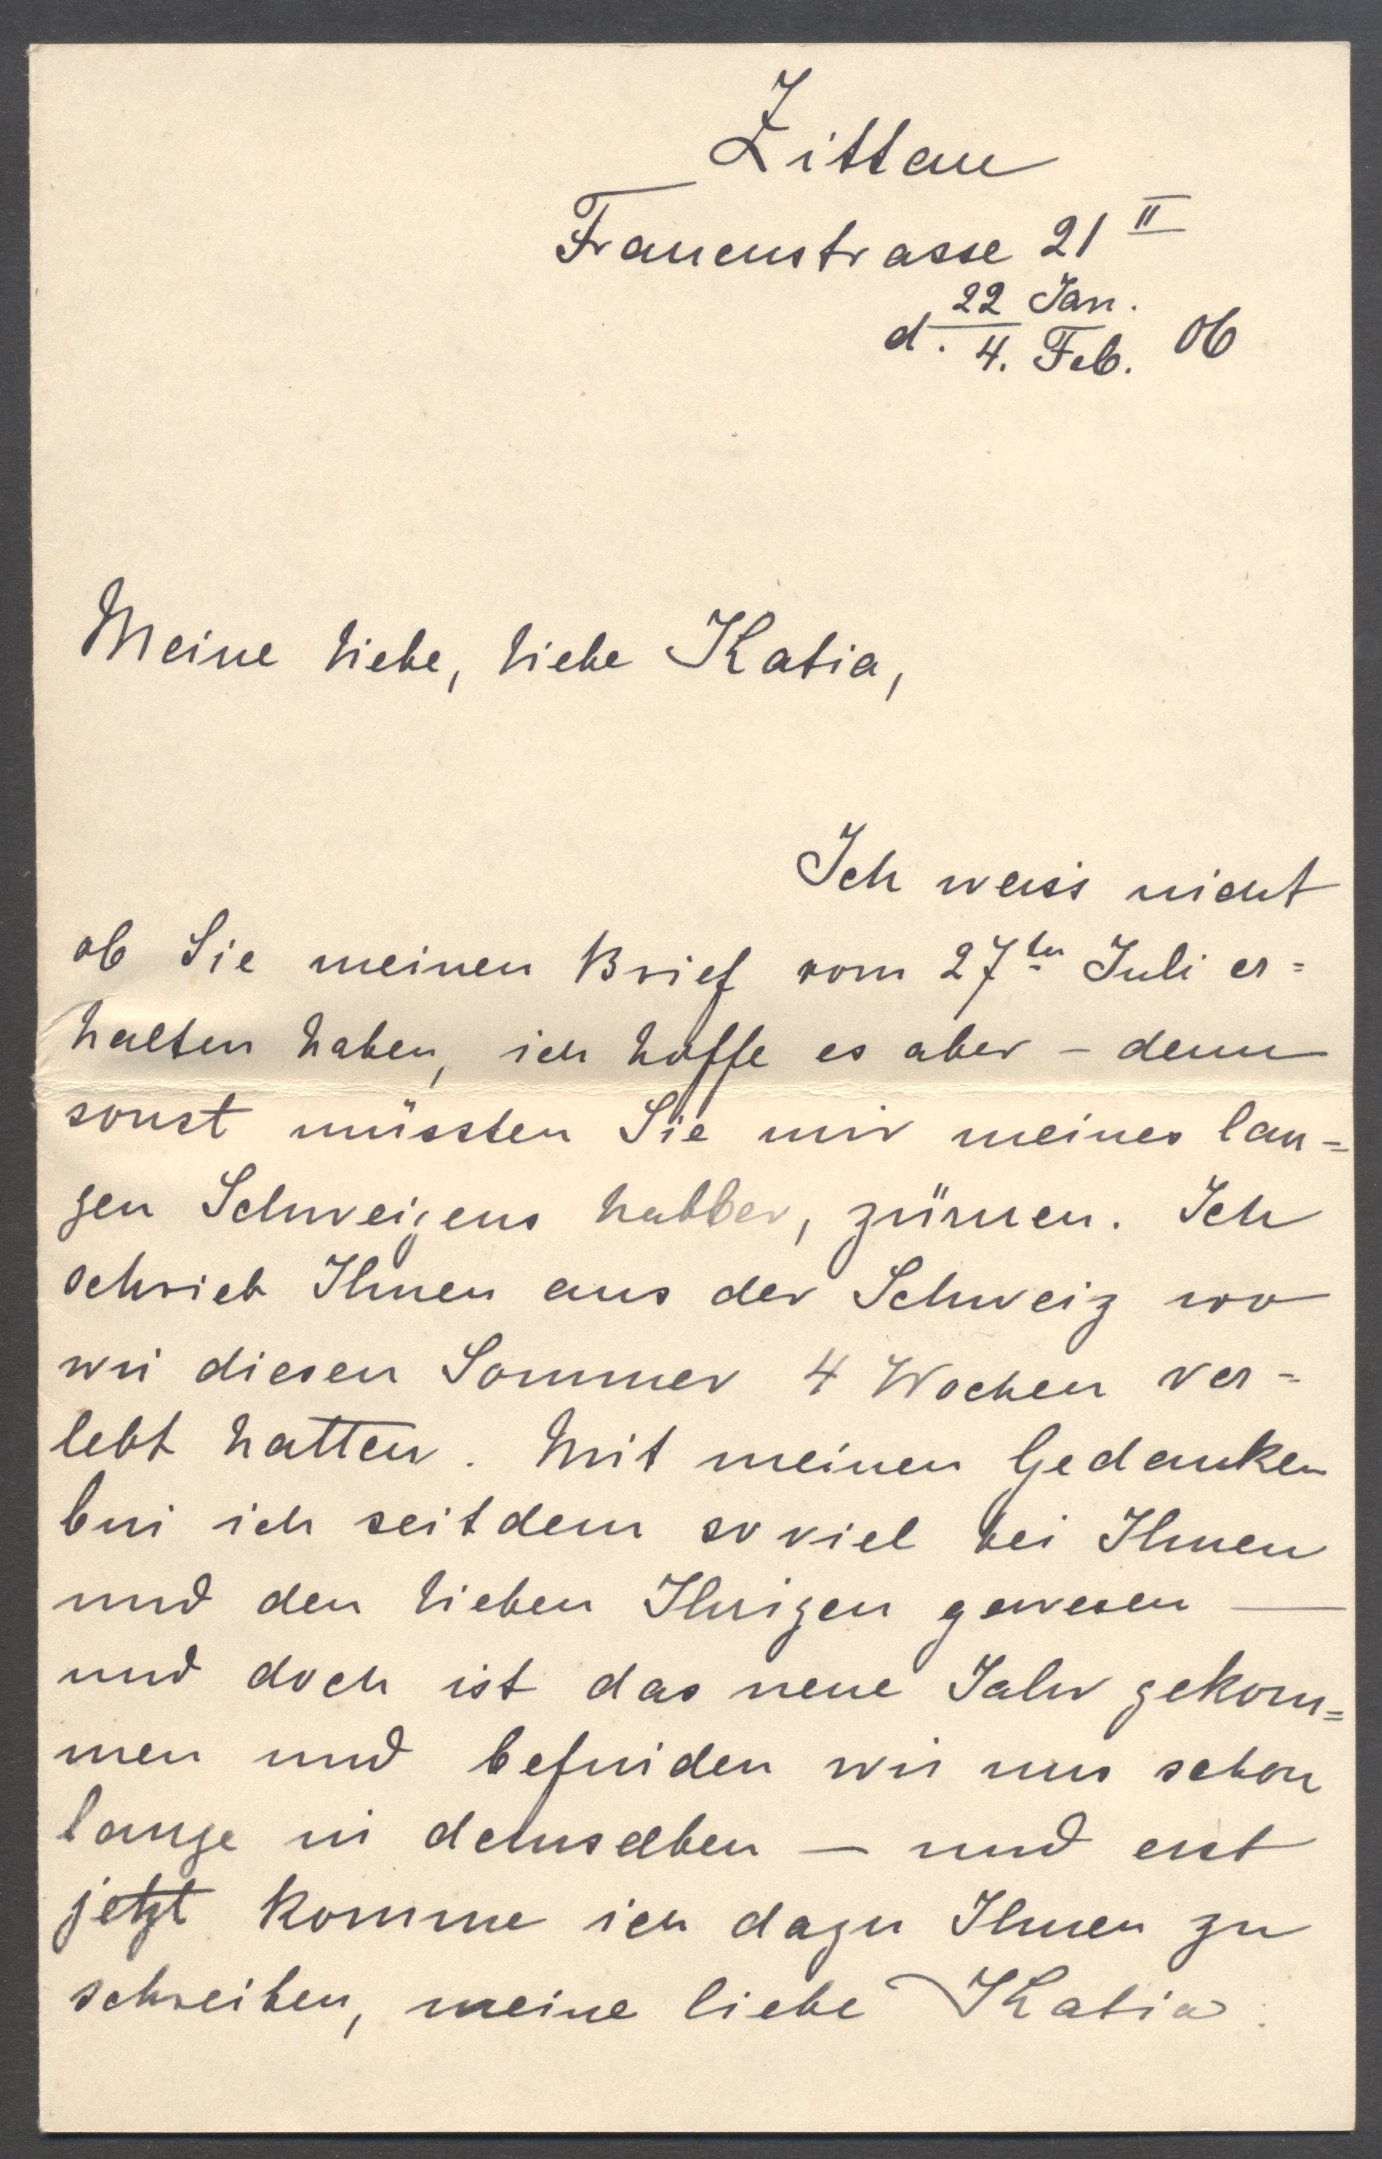 Zittau
Frauenstrasse 21 II
d. 22 Jan.
4. Feb. 06
Meine liebe, liebe Katia,
Ich weiss nicht
ob Sie meinen Brief vom 27ten Juli er=
halten haben, ich hoffe es aber – denn
sonst müssten Sie mir meines lan=
gen Schweigens halber, zürnen. Ich
schrieb Ihnen aus der Schweiz wo
wir diesen Sommer 4 Wochen ver=
lebt hatten. Mit meinen Gedanken
bin ich seitdem so viel bei Ihnen
und den lieben Ihrigen gewesen —
und doch ist das neue Jahr gekom=
men und befinden wir uns schon
lange in demselben — und erst
jetzt komme ich dazu Ihnen zu
schreiben, meine liebe Katia.